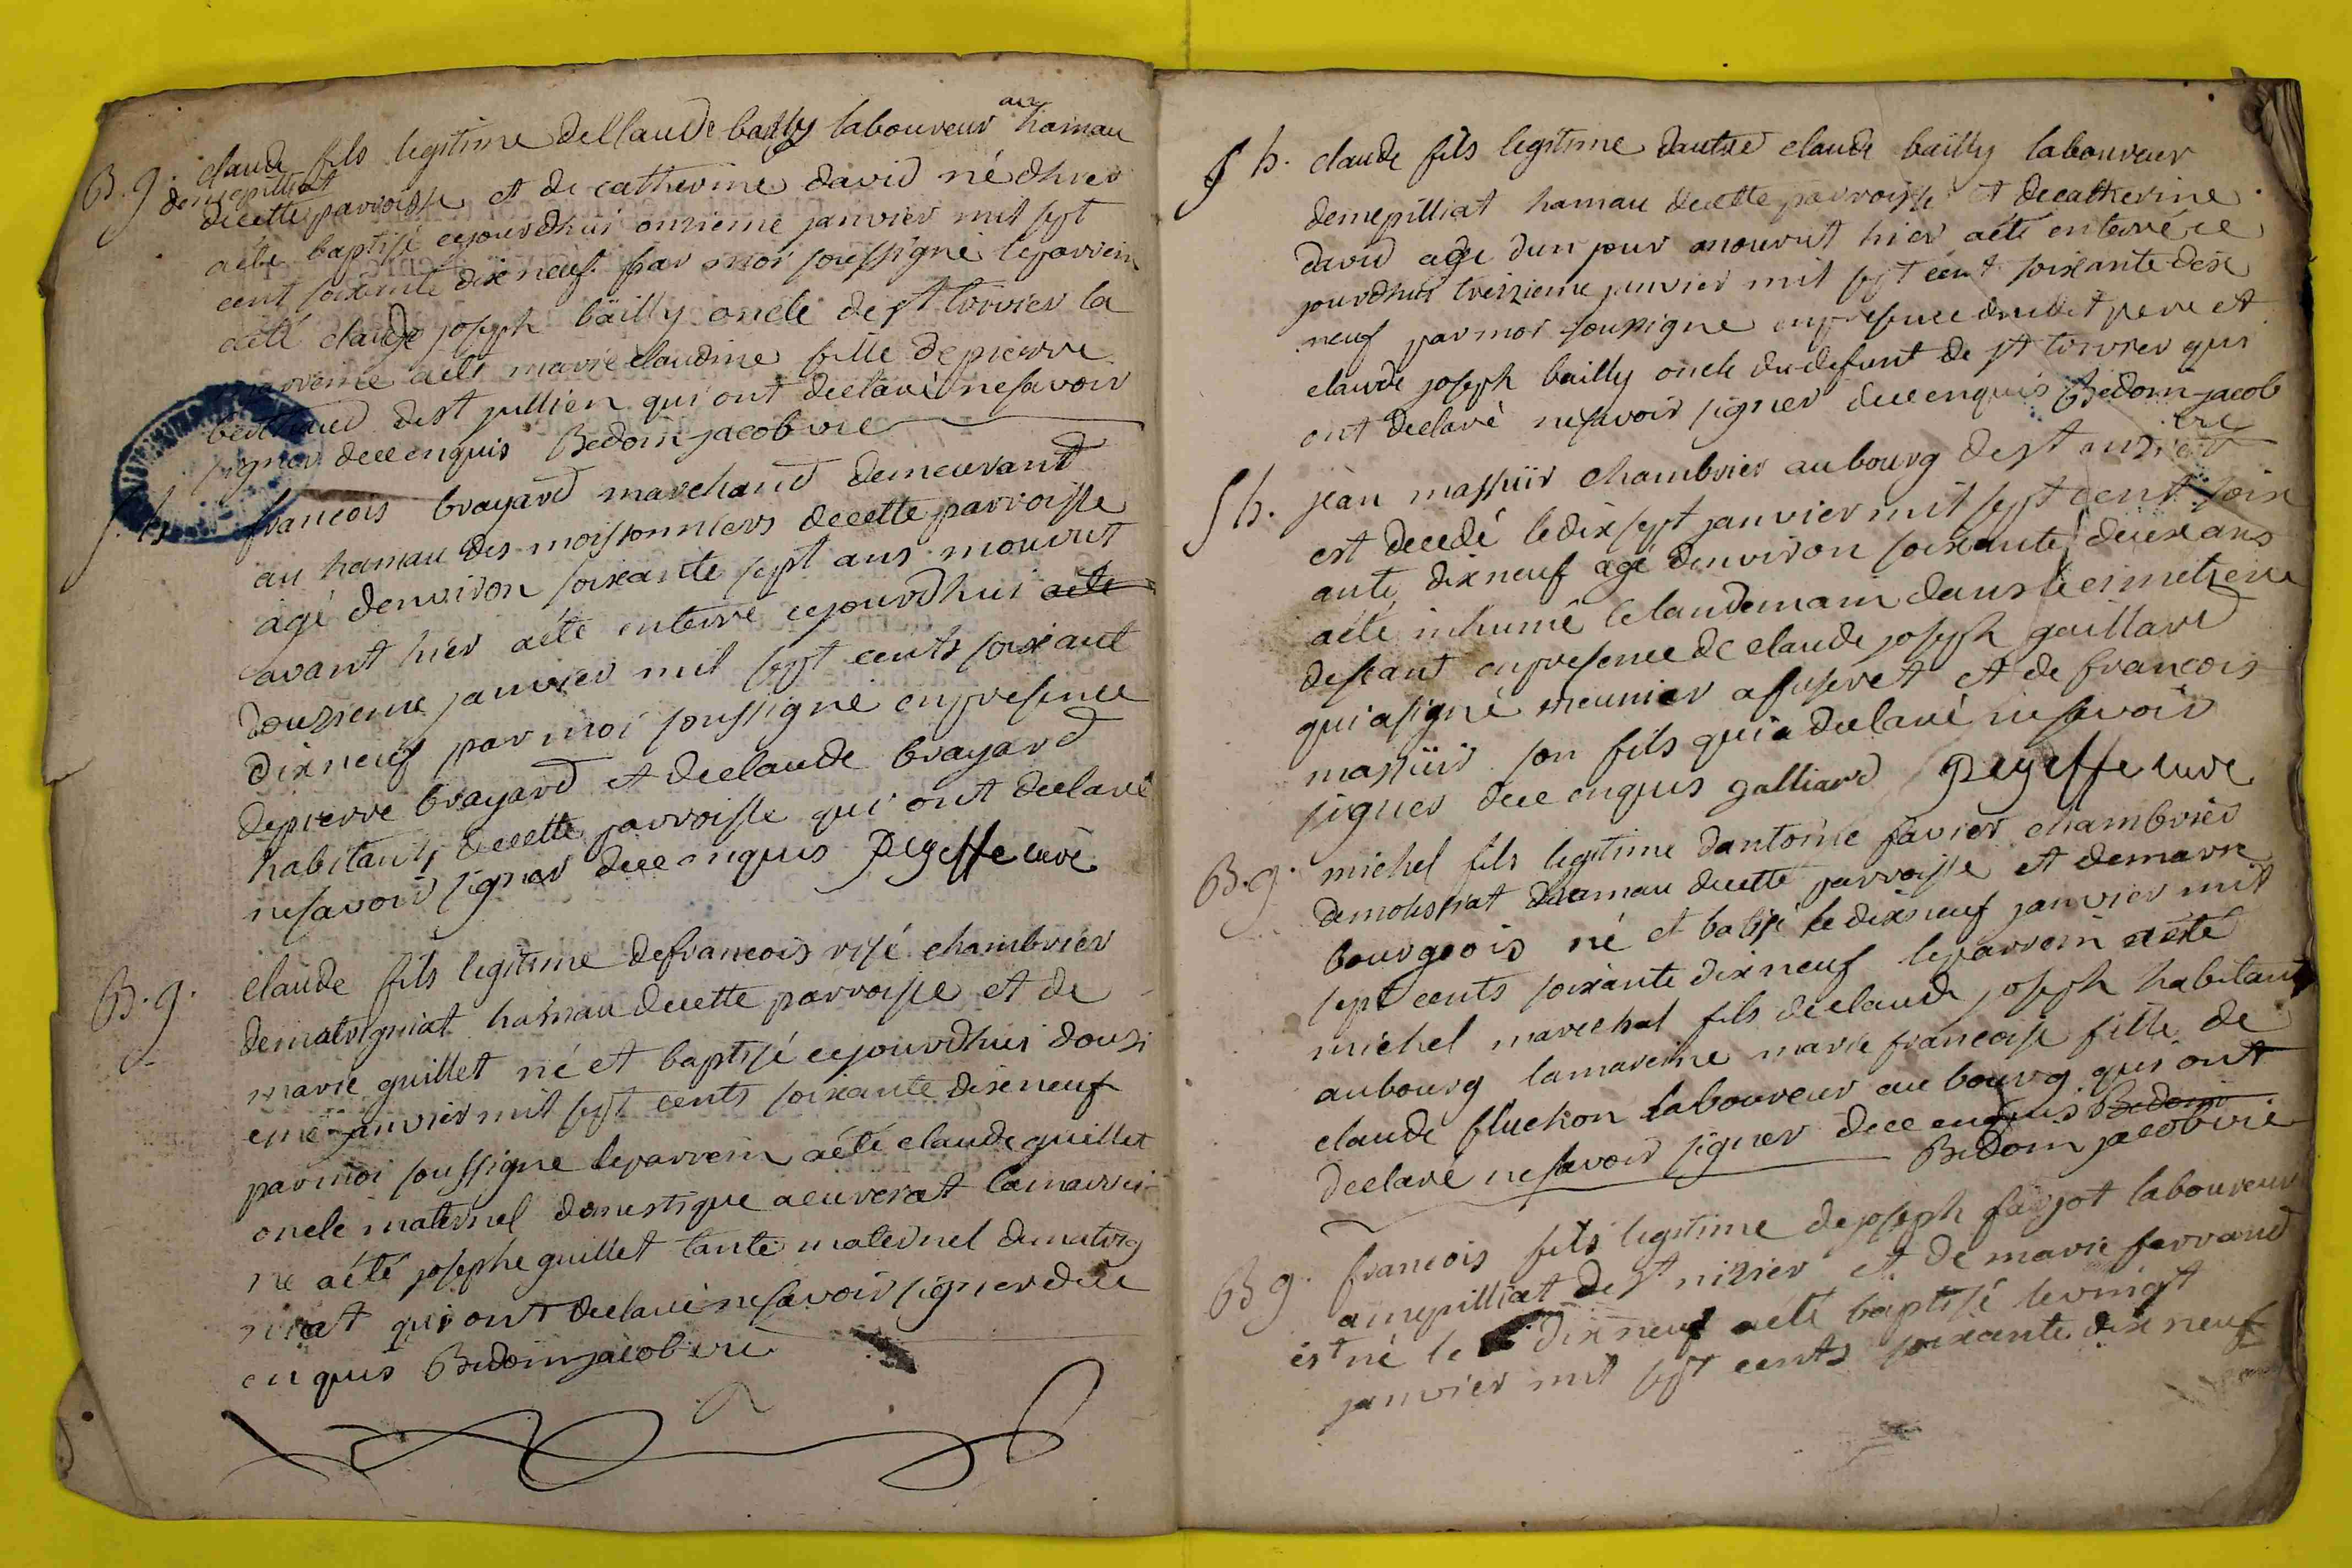 B.g. claude fils legitime de Claude bailly laboureur au hamau
demepilliat
decette parroisse et de catherine david né d'hier
aété baptisé cejourdhui onzieme janvier mil sept
cent soixante dix neuf par moi soussigné leparrein
aété claude joseph bailly oncle de st trivier la
marreine aété marie claudine fille depierre
dest jullien qui ont declaré nesavoir
signer dece enquis Bedoin jacob vic
S. h. francois brayard marchand demeurant
au hamau des moissonniers decette parroisse
agé denviron soixante sept ans mourut
avant hier aété enterré cejourdhui aété
douzieme janvier mil sept cents soixant
dix neuf par moi soussigné enpresence
depierre brayard et declaude brayard
habitants decette parroisse qui ont declaré
nesavoir signer dece enquis Pegeffe curé
B.g. claude fils legitime defrancois risé chambrier
dematrigniat hamau decette parroisse et de
marie guillet né et baptisé cejourdhui douzi
eme janvier mil sept cents soixante dix neuf
parmoi soussigné leparrein aété claude guillet
oncle maternel domestique acuverat lamarrei
ne aété josephe guillet tante maternel dematrig
niat qui ont declaré nesavoir signer dece
enquis Bedoin jacob vic
S h. claude fils legitime dautre claude bailly laboureur
demepilliat hamau decette parroisse et decatherine
david agé dun jour mourut hier aété enterré ce
jourdhui treizieme janvier mil sept cent soixante dix
neuf par moi soussigné enpresence dudit pere et
claude joseph bailly oncle dudefunt de st trivier qui
ont declaré nesavoir signer dece enquis Bedoin jacob
vic
S h. jean massuir chambrier aubourg dest nizier
est decedé ledix sept janvier mil sept cent soix
ante dix neuf agé denviron soixante deux ans
aété inhumé lelandemain dans le cimetiere
enpresence de claude joseph gaillard
quiasigné meunier afuseret et de francois
massuir son fils quia declaré nesavoir
signer dece enquis galliard Pegeffe curé
B.g. michel fils legitime dantoine favier chambrier
hamau decette parroisse et demarie
bourgeois né et batisé le dix neuf janvier mil
sept cents soixante dix neuf leparrein aété
michel marechal fils declaude joseph habitant
aubourg lamareine marie francoise fille de
claude fluchon laboureur au bourg qui ont
declaré nesavoir signer dece enquis Bedoin
Bedoin jacob vic
B g. francois fils legitime dejoseph farjot laboureur
amepilliat de st nizier et de marie ferrand
est né le dix neuf aété baptisé levingt
janvier mil sept cents soixante dix neuf